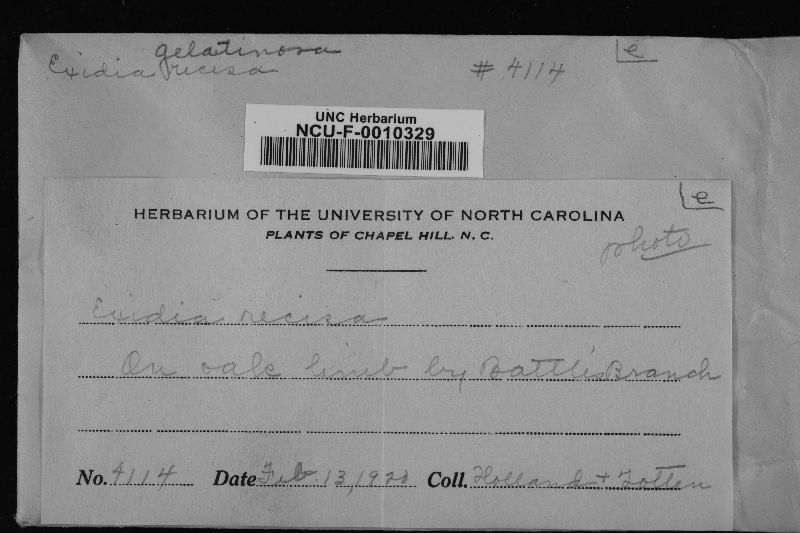 gelatinosa
Exidia recisa # 4114 e
UNC Herbarium
NCU-F-0010329
e
HERBARIUM OF THE UNIVERSITY OF NORTH CAROLINA
PLANTS OF CHAPEL HILL. N. C.
photo
Exidia recisa
On oak limb by Battle's Branch
No. 4114 Date Feb. 13, 1920 Coll. Holland + Totten